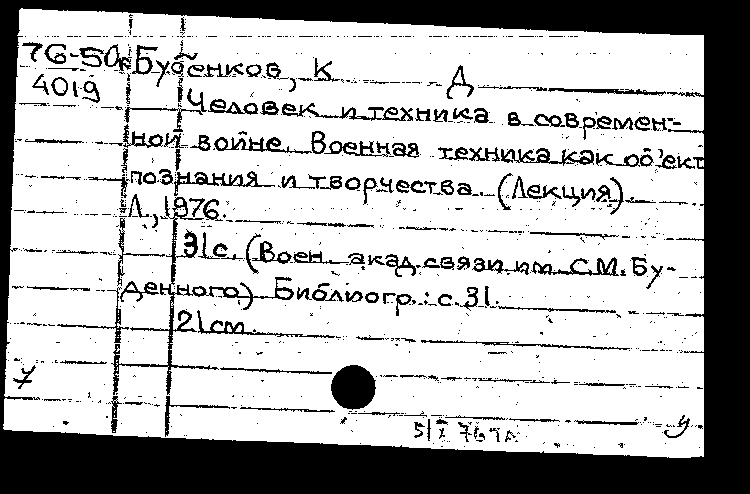 76-50к Бубенков, К Д
4019
Человек и техника в современ-
ной войне. Военная техника как об'ект
познания и творчества. (Лекция).
Л., 1976.
31с. (Воен. акад. связи им. С.М. Бу-
денного) Библиогр.: с. 31.
21см.
7
у